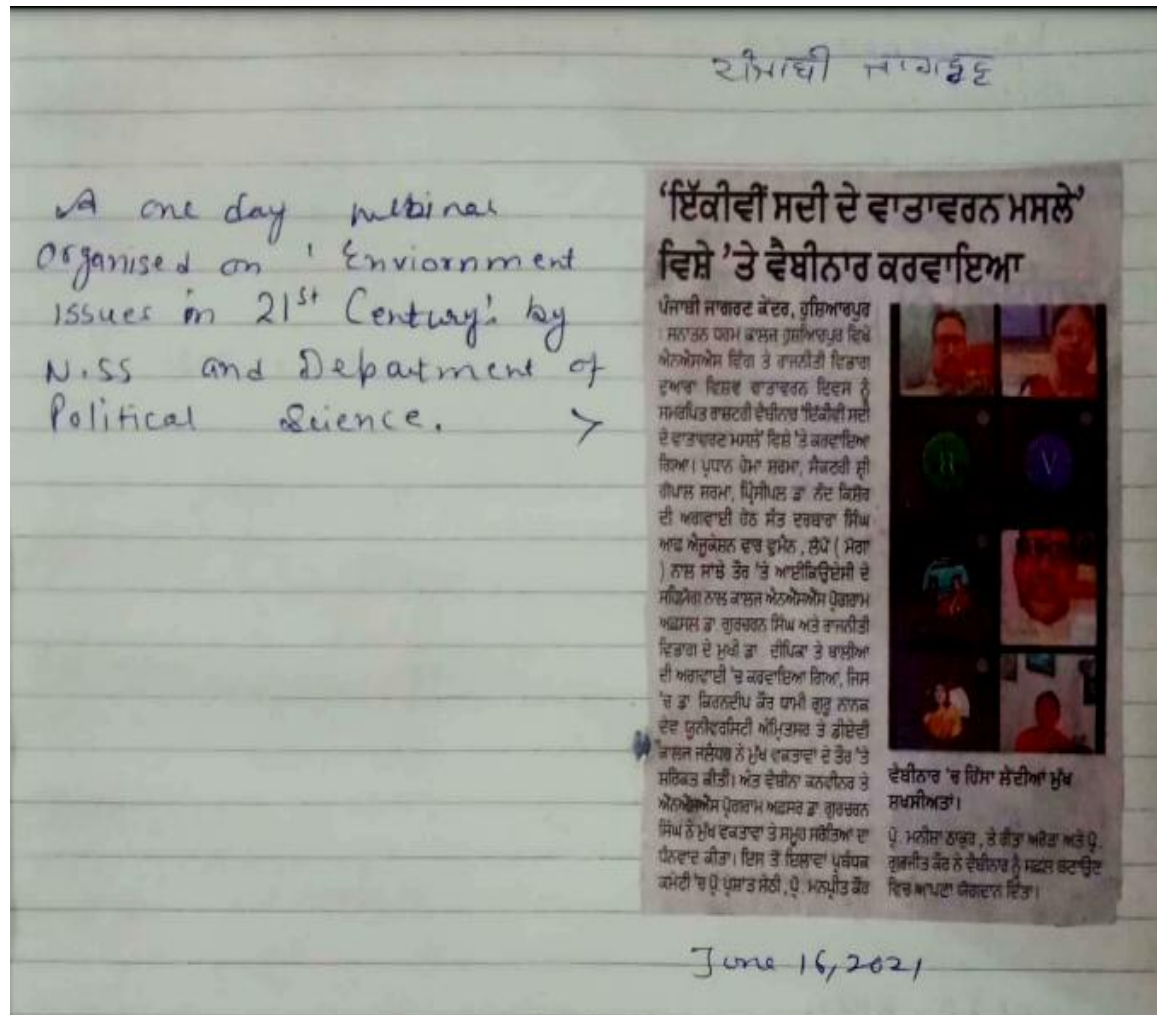 ਪੰਜਾਬੀ ਜਾਗਰਣ
A one day webinar
organised on ' Enviornment
issues in 21st Century' by
N.SS and Department of
Political Science. >
'ਇੱਕੀਵੀਂ ਸਦੀ ਦੇ ਵਾਤਾਵਰਨ ਮਸਲੇ'
ਵਿਸ਼ੇ 'ਤੇ ਵੈਬੀਨਾਰ ਕਰਵਾਇਆ
ਪੰਜਾਬੀ ਜਾਗਰਣ ਕੇਂਦਰ, ਹੁਸ਼ਿਆਰਪੁਰ
: ਸਨਾਤਨ ਧਰਮ ਕਾਲਜ ਹੁਸ਼ਿਆਰਪੁਰ ਵਿਖੇ
ਐਨਐਸਐਸ ਵਿੰਗ ਤੇ ਰਾਜਨੀਤੀ ਵਿਭਾਗ
ਦੁਆਰਾ ਵਿਸ਼ਵ ਵਾਤਾਵਰਨ ਦਿਵਸ ਨੂੰ
ਸਮਰਪਿਤ ਰਾਸ਼ਟਰੀ ਵੈਬੀਨਾਰ 'ਇੱਕੀਵੀਂ ਸਦੀ
ਦੇ ਵਾਤਾਵਰਣ ਮਸਲੇ' ਵਿਸ਼ੇ 'ਤੇ ਕਰਵਾਇਆ
ਗਿਆ। ਪ੍ਰਧਾਨ ਹੇਮਾ ਸ਼ਰਮਾ, ਸੈਕਟਰੀ ਸ਼੍ਰੀ
ਗੋਪਾਲ ਸ਼ਰਮਾ, ਪ੍ਰਿੰਸੀਪਲ ਡਾ ਨੰਦ ਕਿਸ਼ੋਰ
ਦੀ ਅਗਵਾਈ ਹੇਠ ਸੰਤ ਦਰਬਾਰਾ ਸਿੰਘ
ਆਫ ਐਜੂਕੇਸ਼ਨ ਵਾਰ ਵੁਮੈਨ , ਲੋਪੋਂ ( ਮੋਗਾ
) ਨਾਲ ਸਾਂਝੇ ਤੌਰ 'ਤੇ ਆਈਕਿਊਏਸੀ ਦੇ
ਸਹਿਯੋਗ ਨਾਲ ਕਾਲਜ ਐਨਐਸਐਸ ਪ੍ਰੋਗਰਾਮ
ਅਫ਼ਸਰ ਡਾ. ਗੁਰਚਰਨ ਸਿੰਘ ਅਤੇ ਰਾਜਨੀਤੀ
ਵਿਭਾਗ ਦੇ ਮੁਖੀ ਡਾ. ਦੀਪਿਕਾ ਤੇ ਥਾਲੀਆ
ਦੀ ਅਗਵਾਈ 'ਚ ਕਰਵਾਇਆ ਗਿਆ, ਜਿਸ
'ਚ ਡਾ ਕਿਰਨਦੀਪ ਕੌਰ ਧਾਮੀ ਗੁਰੂ ਨਾਨਕ
ਦੇਵ ਯੂਨੀਵਰਸਿਟੀ ਅੰਮ੍ਰਿਤਸਰ ਤੇ ਡੀਏਵੀ
ਕਾਲਜ ਜਲੰਧਰ ਨੇ ਮੁੱਖ ਵਕਤਾਵਾਂ ਦੇ ਤੌਰ 'ਤੇ
ਸ਼ਰਿਕਤ ਕੀਤੀ। ਅੰਤ ਵੈਬੀਨਾ ਕਨਵੀਨਰ ਤੇ
ਐਨਐਸਐਸ ਪ੍ਰੋਗਰਾਮ ਅਫ਼ਸਰ ਡਾ ਗੁਰਚਰਨ
ਸਿੰਘ ਨੇ ਮੁੱਖ ਵਕਤਾਵਾ ਤੇ ਸਮੂਹ ਸਰੋਤਿਆ ਦਾ
ਧੰਨਵਾਦ ਕੀਤਾ। ਇਸ ਤੋਂ ਇਲਾਵਾ ਪ੍ਰਬੰਧਕ
ਕਮੇਟੀ 'ਚ ਪ੍ਰੋ ਪ੍ਰਸ਼ਾਂਤ ਸੇਠੀ , ਪ੍ਰੋ. ਮਨਪ੍ਰੀਤ ਕੌਰ
R
V
ਵੈਬੀਨਾਰ 'ਚ ਹਿੱਸਾ ਲੈਂਦੀਆਂ ਮੁੱਖ
ਸ਼ਖਸੀਅਤਾਂ।
ਪ੍ਰੋ. ਮਨੀਸ਼ਾ ਠਾਕੁਰ , ਤੇ ਰੀਤਾ ਅਰੋੜਾ ਅਤੇ ਪ੍ਰੋ.
ਗੁਰਜੀਤ ਕੌਰ ਨੇ ਵੈਬੀਨਾਰ ਨੂੰ ਸਫ਼ਲ ਬਣਾਉਣ
ਵਿਚ ਆਪਣਾ ਯੋਗਦਾਨ ਦਿੱਤਾ।
June 16, 2021